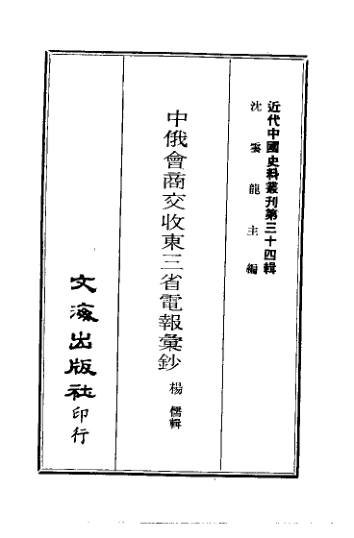 近代中國史料叢刊第三十四輯
沈雲龍主編
中俄會商交收東三省電報彙鈔
楊儒輯
文海出版社印行